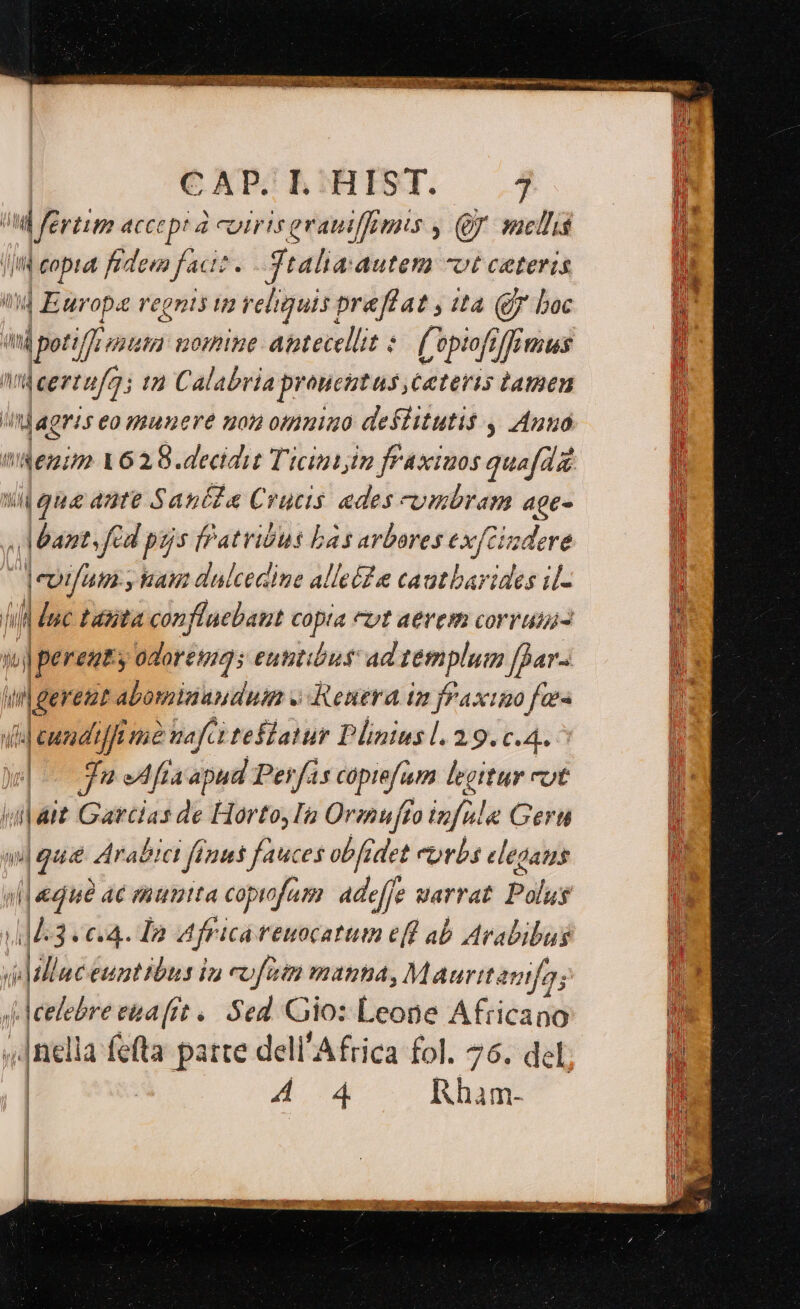 CAP. I. HIST. 7
fertim accepi à viris grauiſſimis, & mellis
copia fidem facit. Italia autem vt cæteris
Europæ regnis in reliquis præſtat, ita & hoc
potiſſimum nomine antecellit: Copioſiſſimus
certuſq; in Calabria prouentus, cæteris tamen
agris eo munere non omnino deſtitutis, Anno
enim 1628. decidit Ticini, in fraxinos quaſdã
quæ ante Sanctæ Crucis ædes vmbram age-
bant, ſed pijs fratribus has arbores exſcindere
viſum, nam dulcedine allectæ cantharides il-
luc tanta confluebant copia vt aerem corrum-
perent, odoremq; euntibus ad templum ſpar-
gerent abominandum. Reuera in fraxino fœ-
cundiſſimè naſci teſtatur Plinius l. 29. c. 4.
In Aſia apud Perſas copieſam legitur vt
ait Garcias de Horto, In Ormuſio inſulæ Geru
quæ Arabici ſinus fauces obſidet vrbs elegans
æquè ac munita copioſam adeſſe narrat Polus
l. 3. c. 4. In Africa reuocatum eſt ab Arabibus
illuc euntibus in vſum manna, Mauritaniſq;
celebre euaſit. Sed Gio: Leone Africano
nella ſeſta parte dell'Africa fol. 76. del,
A 4 Rham-